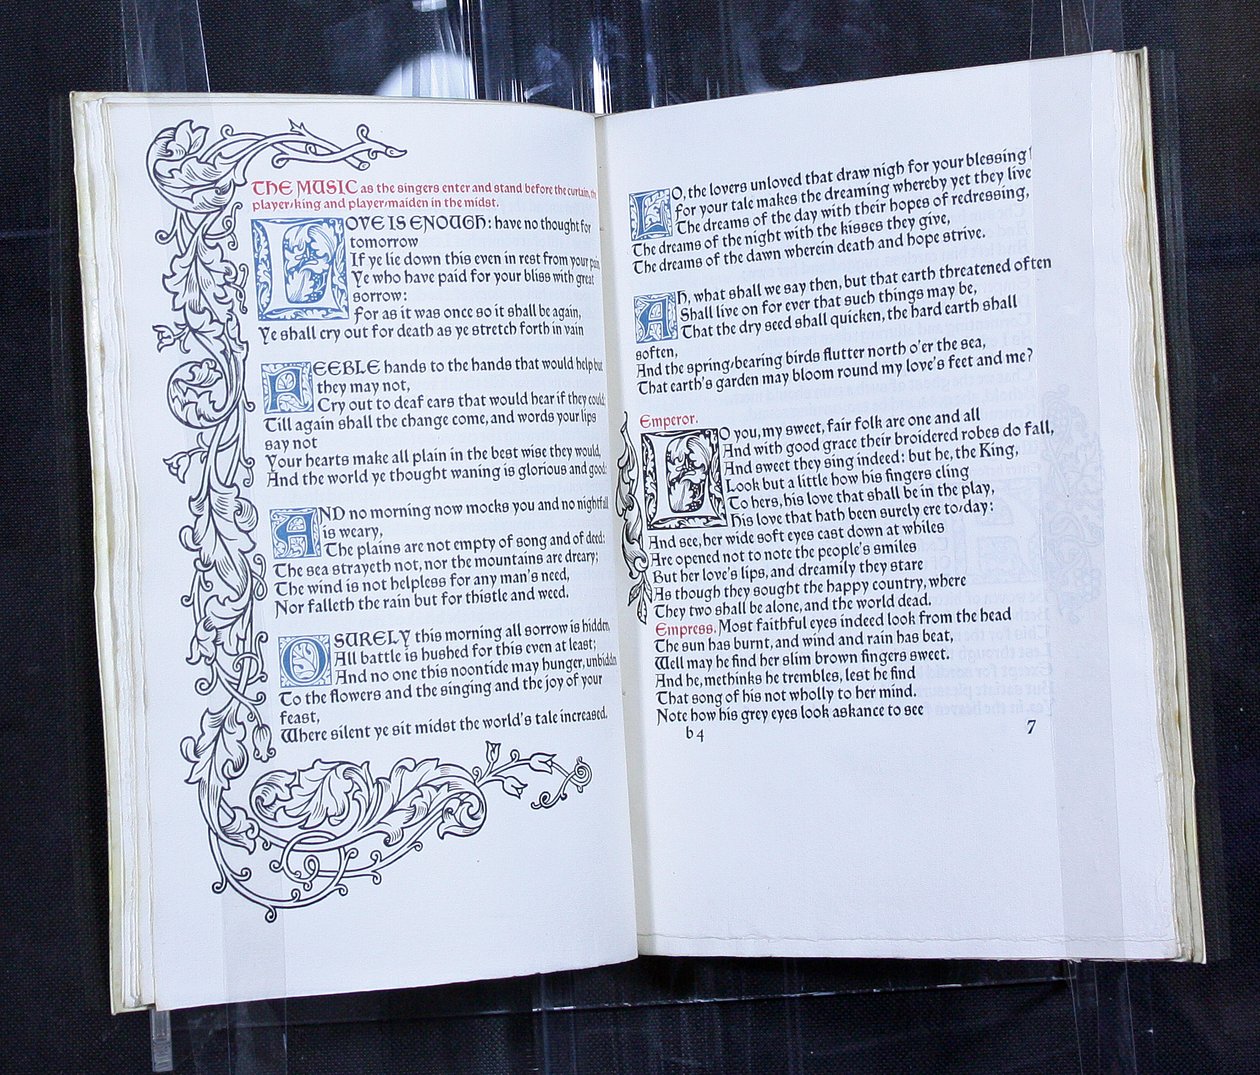 THE MUSIC as the singers enter and stand before the curtain, the
player-king and player-maiden in the midst.
LOVE IS ENOUGH: have no thought for
tomorrow
If ye lie down this even in rest from your pain
Ye who have paid for your bliss with great
sorrow:
For as it was once so it shall be again,
Ye shall cry out for death as ye stretch forth in vain
FEEBLE hands to the hands that would help but
they may not,
Cry out to deaf ears that would hear if they could:
Till again shall the change come, and words your lips
say not
Your hearts make all plain in the best wise they would,
And the world ye thought waning is glorious and good:
AND no morning now mocks you and no nightfall
is weary,
The plains are not empty of song and of deed:
The sea strayeth not, nor the mountains are dreary;
The wind is not helpless for any man's need,
Nor falleth the rain but for thistle and weed.
O SURELY this morning all sorrow is hidden,
All battle is hushed for this even at least;
And no one this noontide may hunger, unbidden
To the flowers and the singing and the joy of your
feast,
Where silent ye sit midst the world's tale increased.
LO, the lovers unloved that draw nigh for your blessing!
For your tale makes the dreaming whereby yet they live
The dreams of the day with their hopes of redressing,
The dreams of the night with the kisses they give,
The dreams of the dawn wherein death and hope strive.
AH, what shall we say then, but that earth threatened often
Shall live on for ever that such things may be,
That the dry seed shall quicken, the hard earth shall
soften,
And the spring-bearing birds flutter north o'er the sea,
That earth's garden may bloom round my love's feet and me?
Emperor.
LO you, my sweet, fair folk are one and all
And with good grace their broidered robes do fall,
And sweet they sing indeed: but he, the King,
Look but a little how his fingers cling
To hers, his love that shall be in the play,
His love that hath been surely ere to-day:
And see, her wide soft eyes cast down at whiles
Are opened not to note the people's smiles
But her love's lips, and dreamily they stare
As though they sought the happy country, where
They two shall be alone, and the world dead.
Empress. Most faithful eyes indeed look from the head
The sun has burnt, and wind and rain has beat,
Well may he find her slim brown fingers sweet.
And he, methinks he trembles, lest he find
That song of his not wholly to her mind.
Note how his grey eyes look askance to see
b4 7